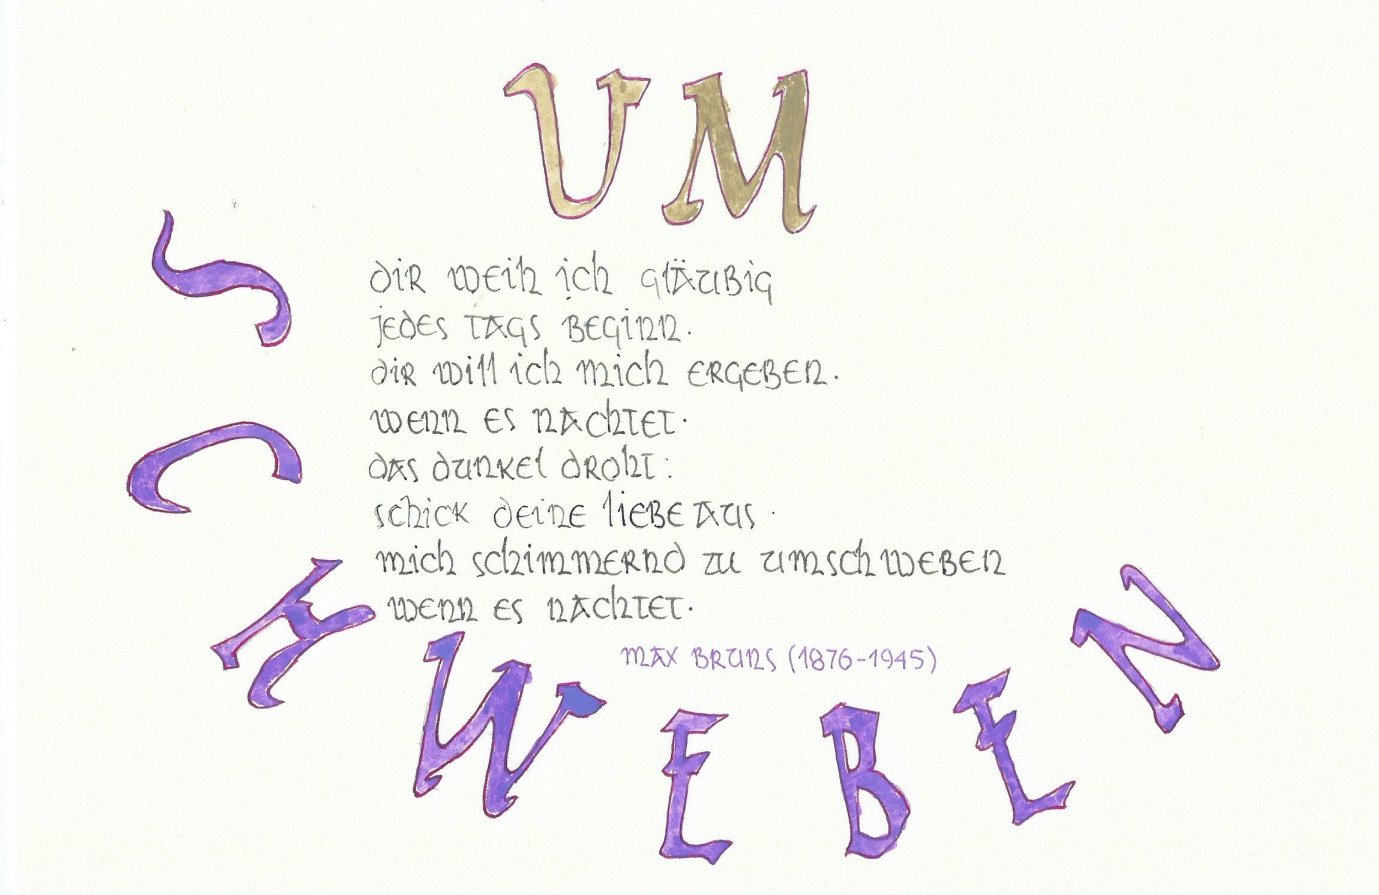 UM
SCHWEBEN
dir weih ich gläubig
jedes tags beginn.
dir will ich mich ergeben.
wenn es nachtet.
das dunkel droht:
schick deine liebe aus.
mich schimmernd zu umschweben
wenn es nachtet.
MAX BRUNS (1876-1945)